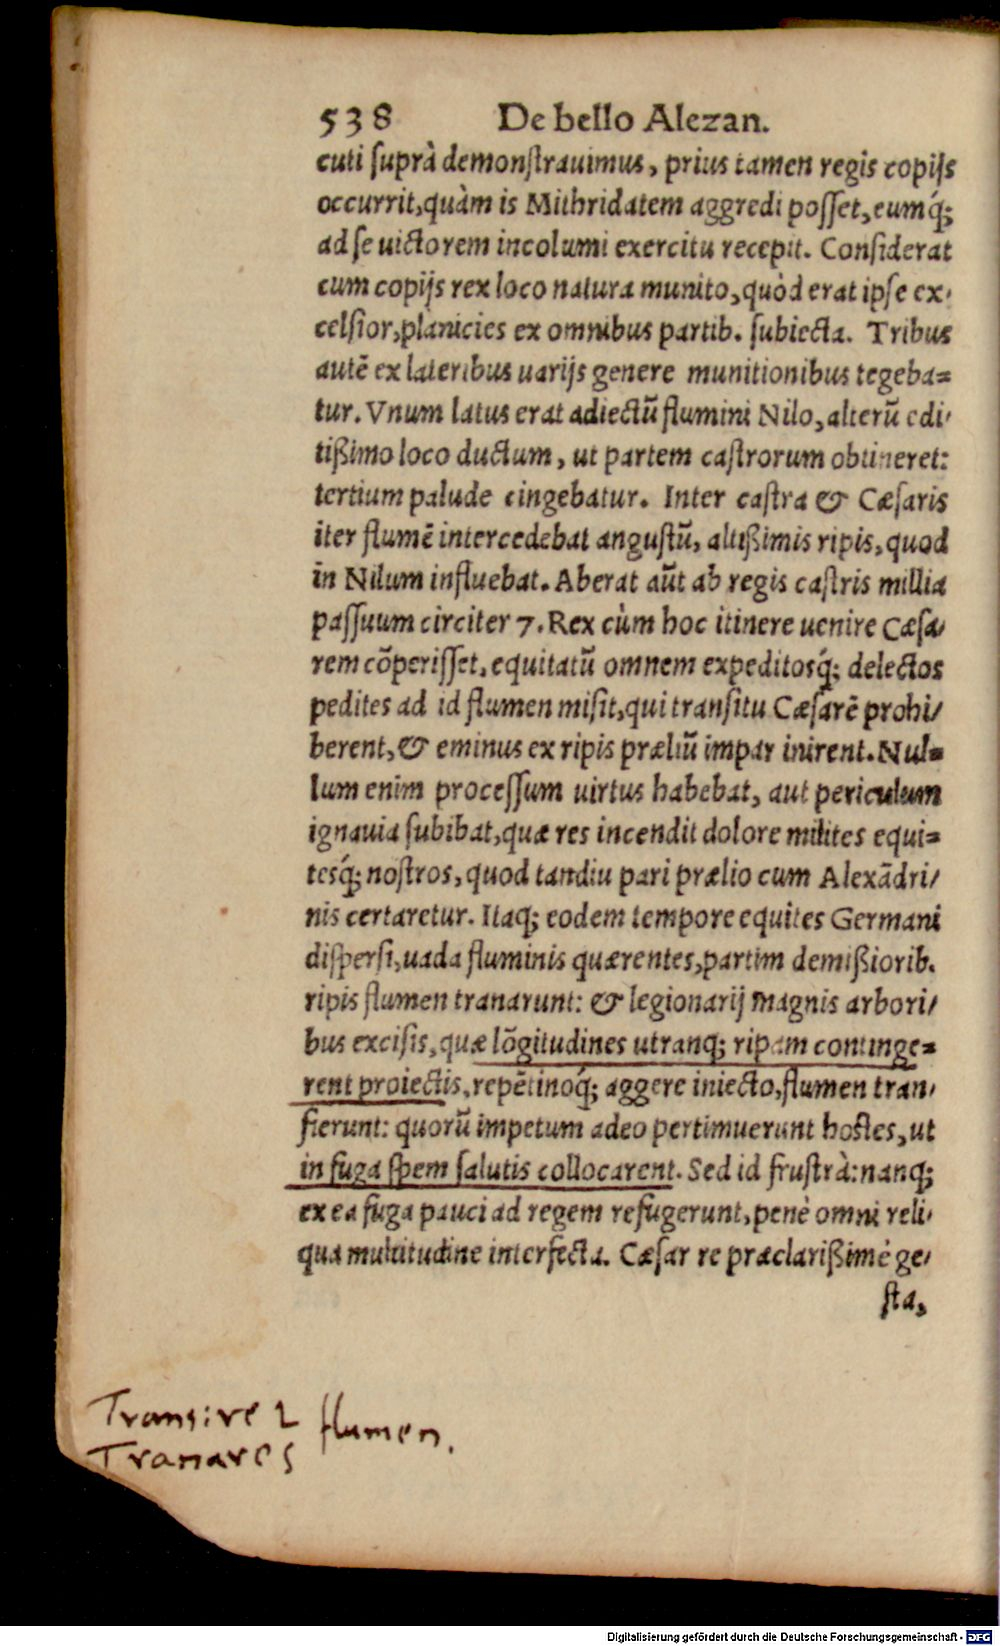 538 De bello Alezan.
cuti suprà demonstrauimus, prius tamen regis copijs
occurrit, quàm is Mithridatem aggredi posset, eumq́;
ad se uictorem incolumi exercitu recepit. Considerat
cum copijs rex loco natura munito, quòd erat ipse ex-
celsior, planicies ex omnibus partib. subiecta. Tribus
autẽ ex lateribus uarijs genere munitionibus tegeba=
tur. Vnum latus erat adiectũ flumini Nilo, alterũ edi-
tißimo loco ductum, ut partem castrorum obtineret:
tertium palude cingebatur. Inter castra & Cæsaris
iter flumẽ intercedebat angustũ, altißimis ripis, quod
in Nilum influebat. Aberat aũt ab regis castris millia
passuum circiter 7. Rex cùm hoc itinere uenire Cæsa-
rem cõperisset, equitatũ omnem expeditosq́; delectos
pedites ad id flumen misit, qui transitu Cæsarẽ prohi-
berent, & eminus ex ripis præliũ impar inirent. Nul=
lum enim processum uirtus habebat, aut periculum
ignauia subibat, quæ res incendit dolore milites equi=
tesq́; nostros, quod tandiu pari prælio cum Alexãdri-
nis certaretur. Itaq; eodem tempore equites Germani
dispersi, uada fluminis quærentes, partim demißiorib.
ripis flumen tranarunt: & legionarij magnis arbori-
bus excisis, quæ lõgitudines utranq; ripam continge=
rent proiectis, repẽtinoq́; aggere iniecto, flumen tran-
sierunt: quorũ impetum adeo pertimuerunt hostes, ut
in fuga spem salutis collocarent. Sed id frustrà: nanq;
ex ea fuga pauci ad regem refugerunt, penè omni reli-
qua multitudine interfecta. Cæsar re præclarißimè ge-
sta,
Transire flumen.
Tranare
Digitalisierung gefördert durch die Deutsche Forschungsgemeinschaft - DFG